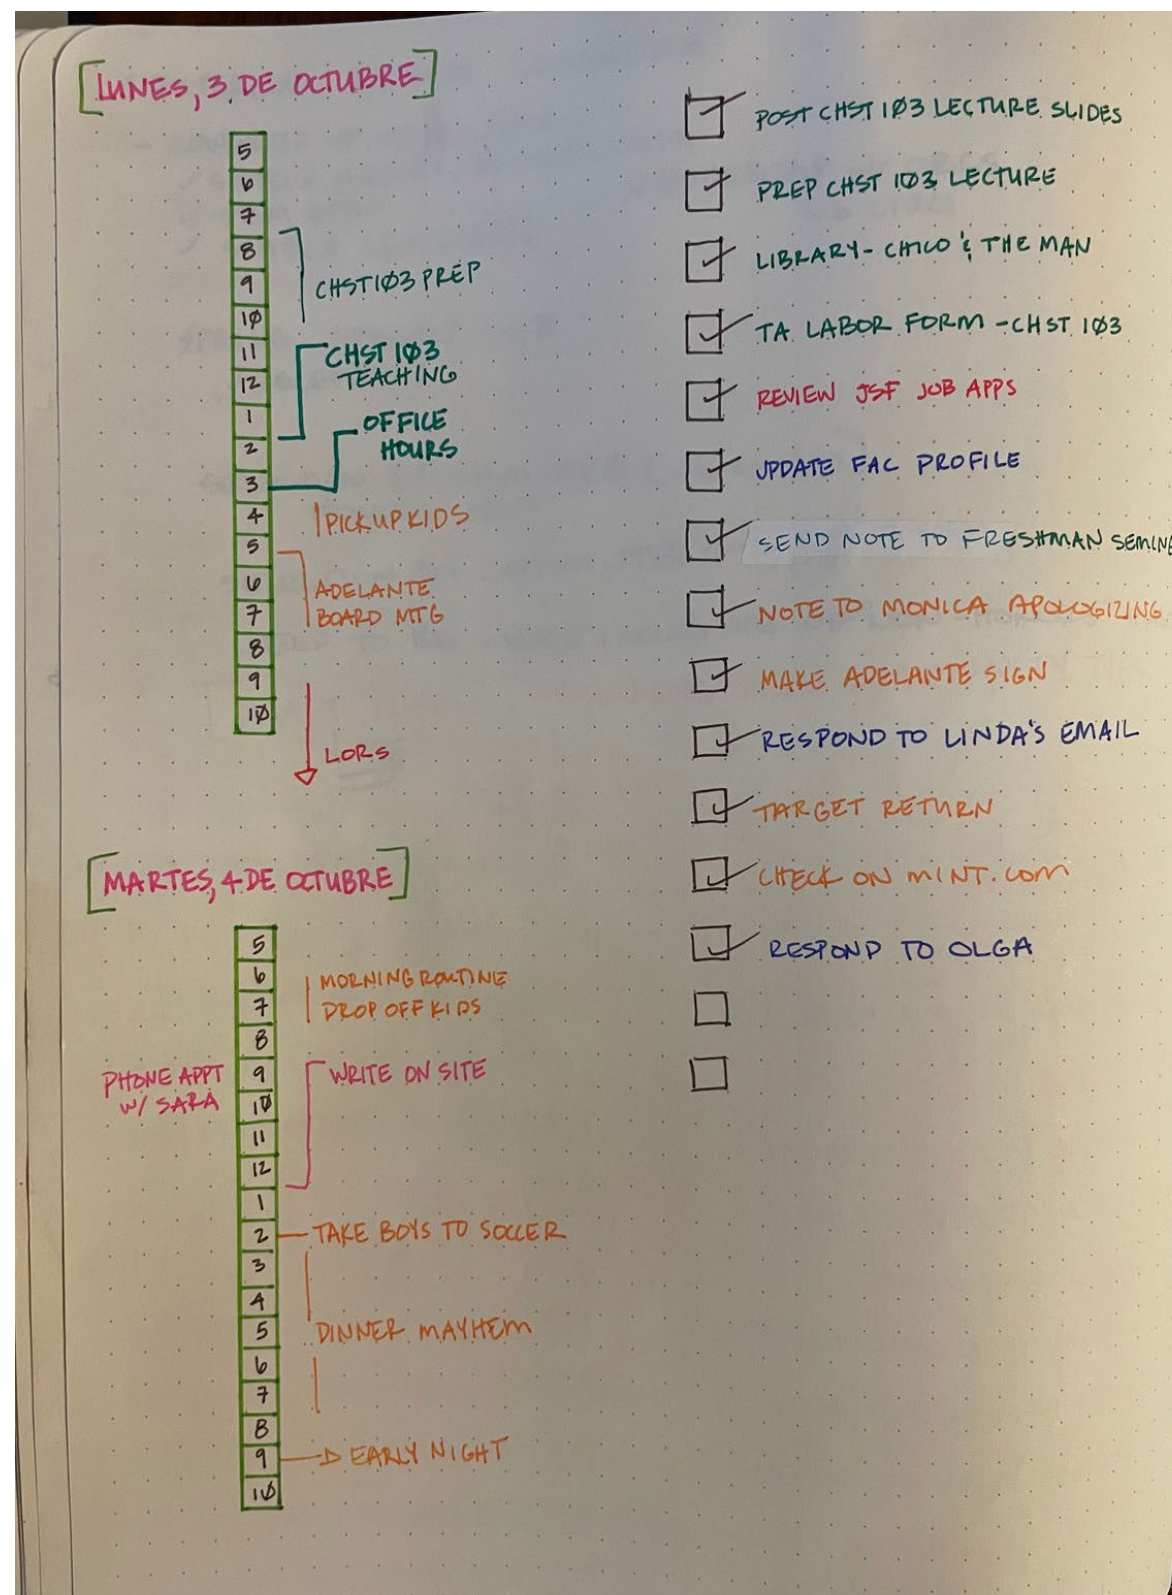 [LUNES, 3 DE OCTUBRE]
5
6
7
8
9
10
11
12
1
2
3
4
5
6
7
8
9
10
CHST 103 PREP
CHST 103
TEACHING
OFFICE
HOURS
PICK UP KIDS
ADELANTE
BOARD MTG
LORS
[MARTES, 4 DE OCTUBRE]
5
6
7
8
9
10
11
12
1
2
3
4
5
6
7
8
9
10
MORNING ROUTINE
DROP OFF KIDS
PHONE APPT
W/ SARA
WRITE ON SITE
TAKE BOYS TO SOCCER
DINNER MAYHEM
EARLY NIGHT
POST CHST 103 LECTURE SLIDES
PREP CHST 103 LECTURE
LIBRARY - CHICO & THE MAN
TA LABOR FORM - CHST 103
REVIEW JSF JOB APPS
UPDATE FAC PROFILE
SEND NOTE TO FRESHMAN SEMINE
NOTE TO MONICA APOLOGIZING
MAKE ADELANTE SIGN
RESPOND TO LINDA'S EMAIL
TARGET RETURN
CHECK ON MINT.COM
RESPOND TO OLGA